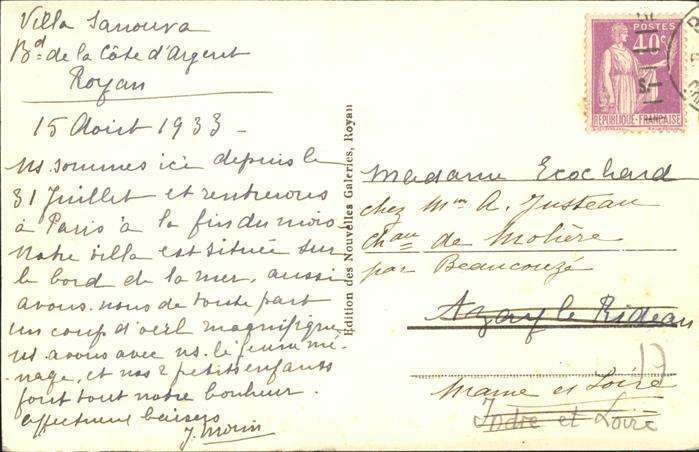 Villa Sanouva
Bd de la Côte d'Argent
Royan
15 Août 1933 -
ns sommes ici depuis le
31 Juillet et rentrerons
à Paris à la fin du mois
notre villa est située sur
le bord de la mer, aussi
avons-nous de toute part
un coup d'oeil magnifique
ns avons avec ns le jeune mé-
nage, et nos 2 petits enfants
font tout notre bonheur.
affectueux baisers
J. Morin
Edition des Nouvelles Galeries, Royan
POSTES
40c
RÉPUBLIQUE-FRANÇAISE
Madame Ecochard
chez Mme A. Justeau
Chau de Molière
par Beaucouzé
Azay le Rideau
17
Maine et Loire
Indre et Loire